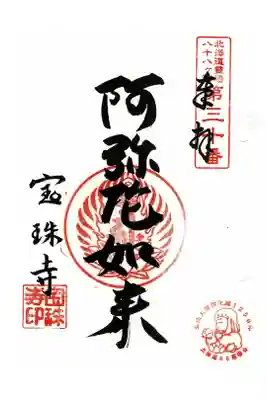 北海道霊場
八十八ヶ所
第三十番
奉拝
阿弥陀如来
宝珠寺